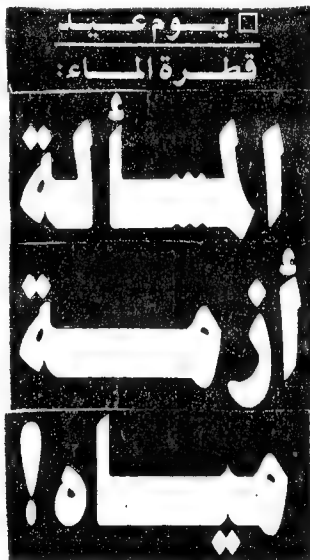 □ يوم عيد
قطرة الماء:
المسألة
أزمة
مياه!